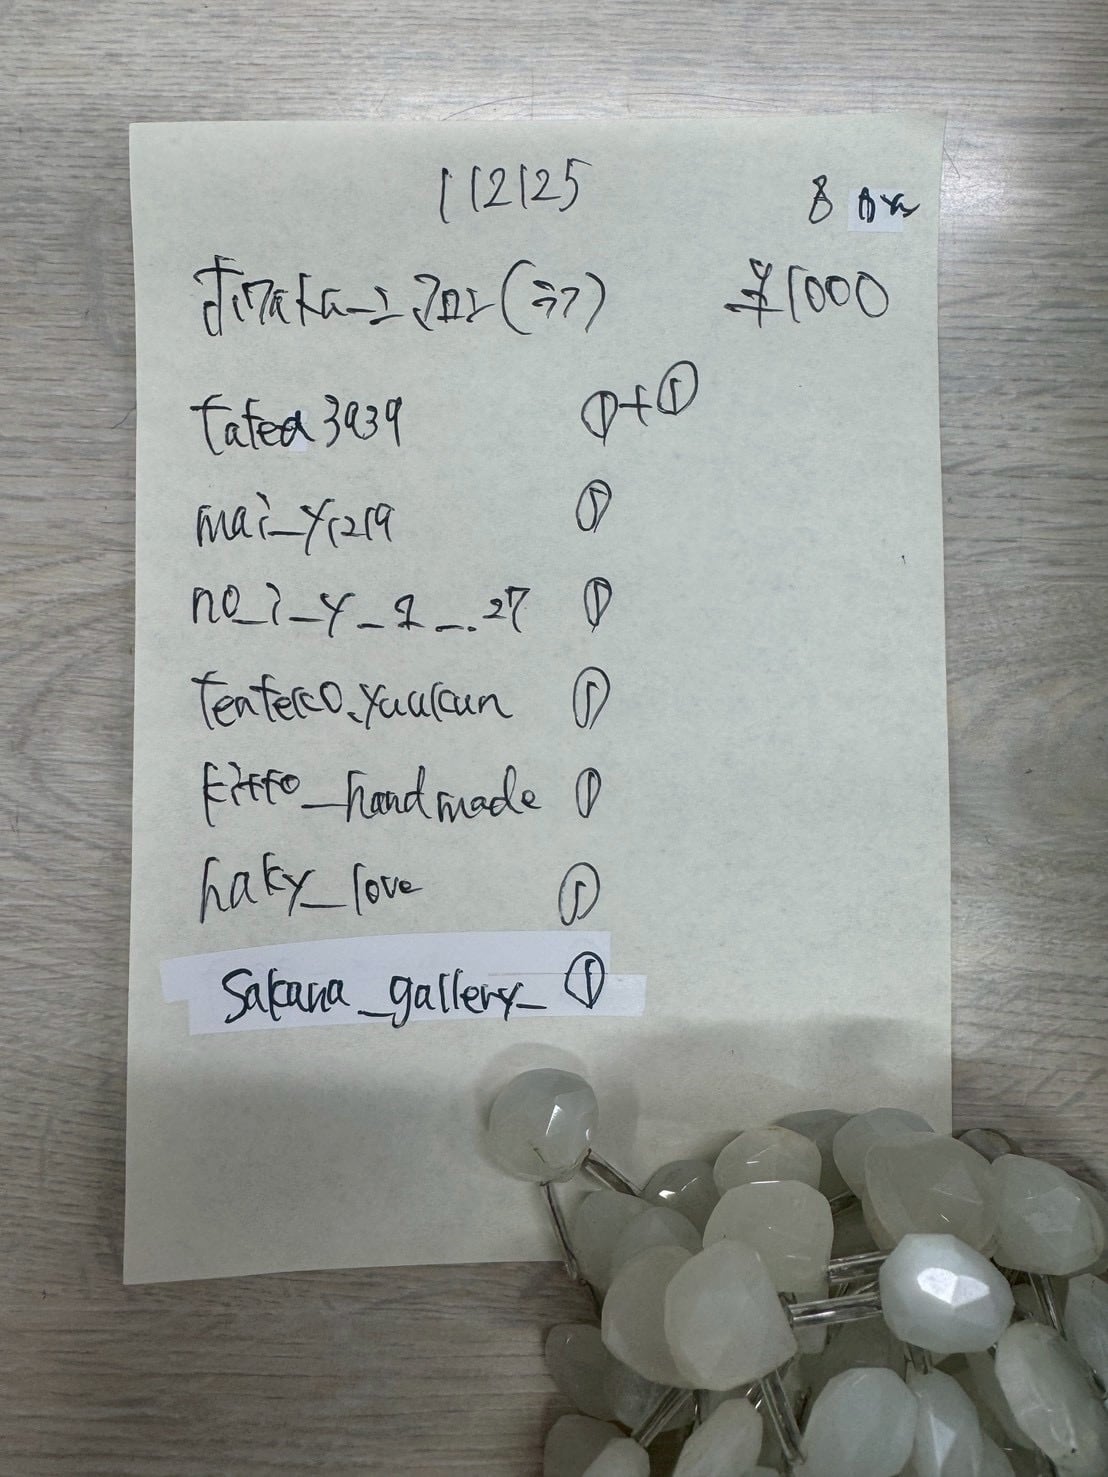 112125
8
¥1000
tatea3939 ①+①
mai_y1219 ①
no_i_y_1_.27 ①
tenteko.yuukun ①
kitto_handmade ①
haky_love ①
sakana_gallery_ ①